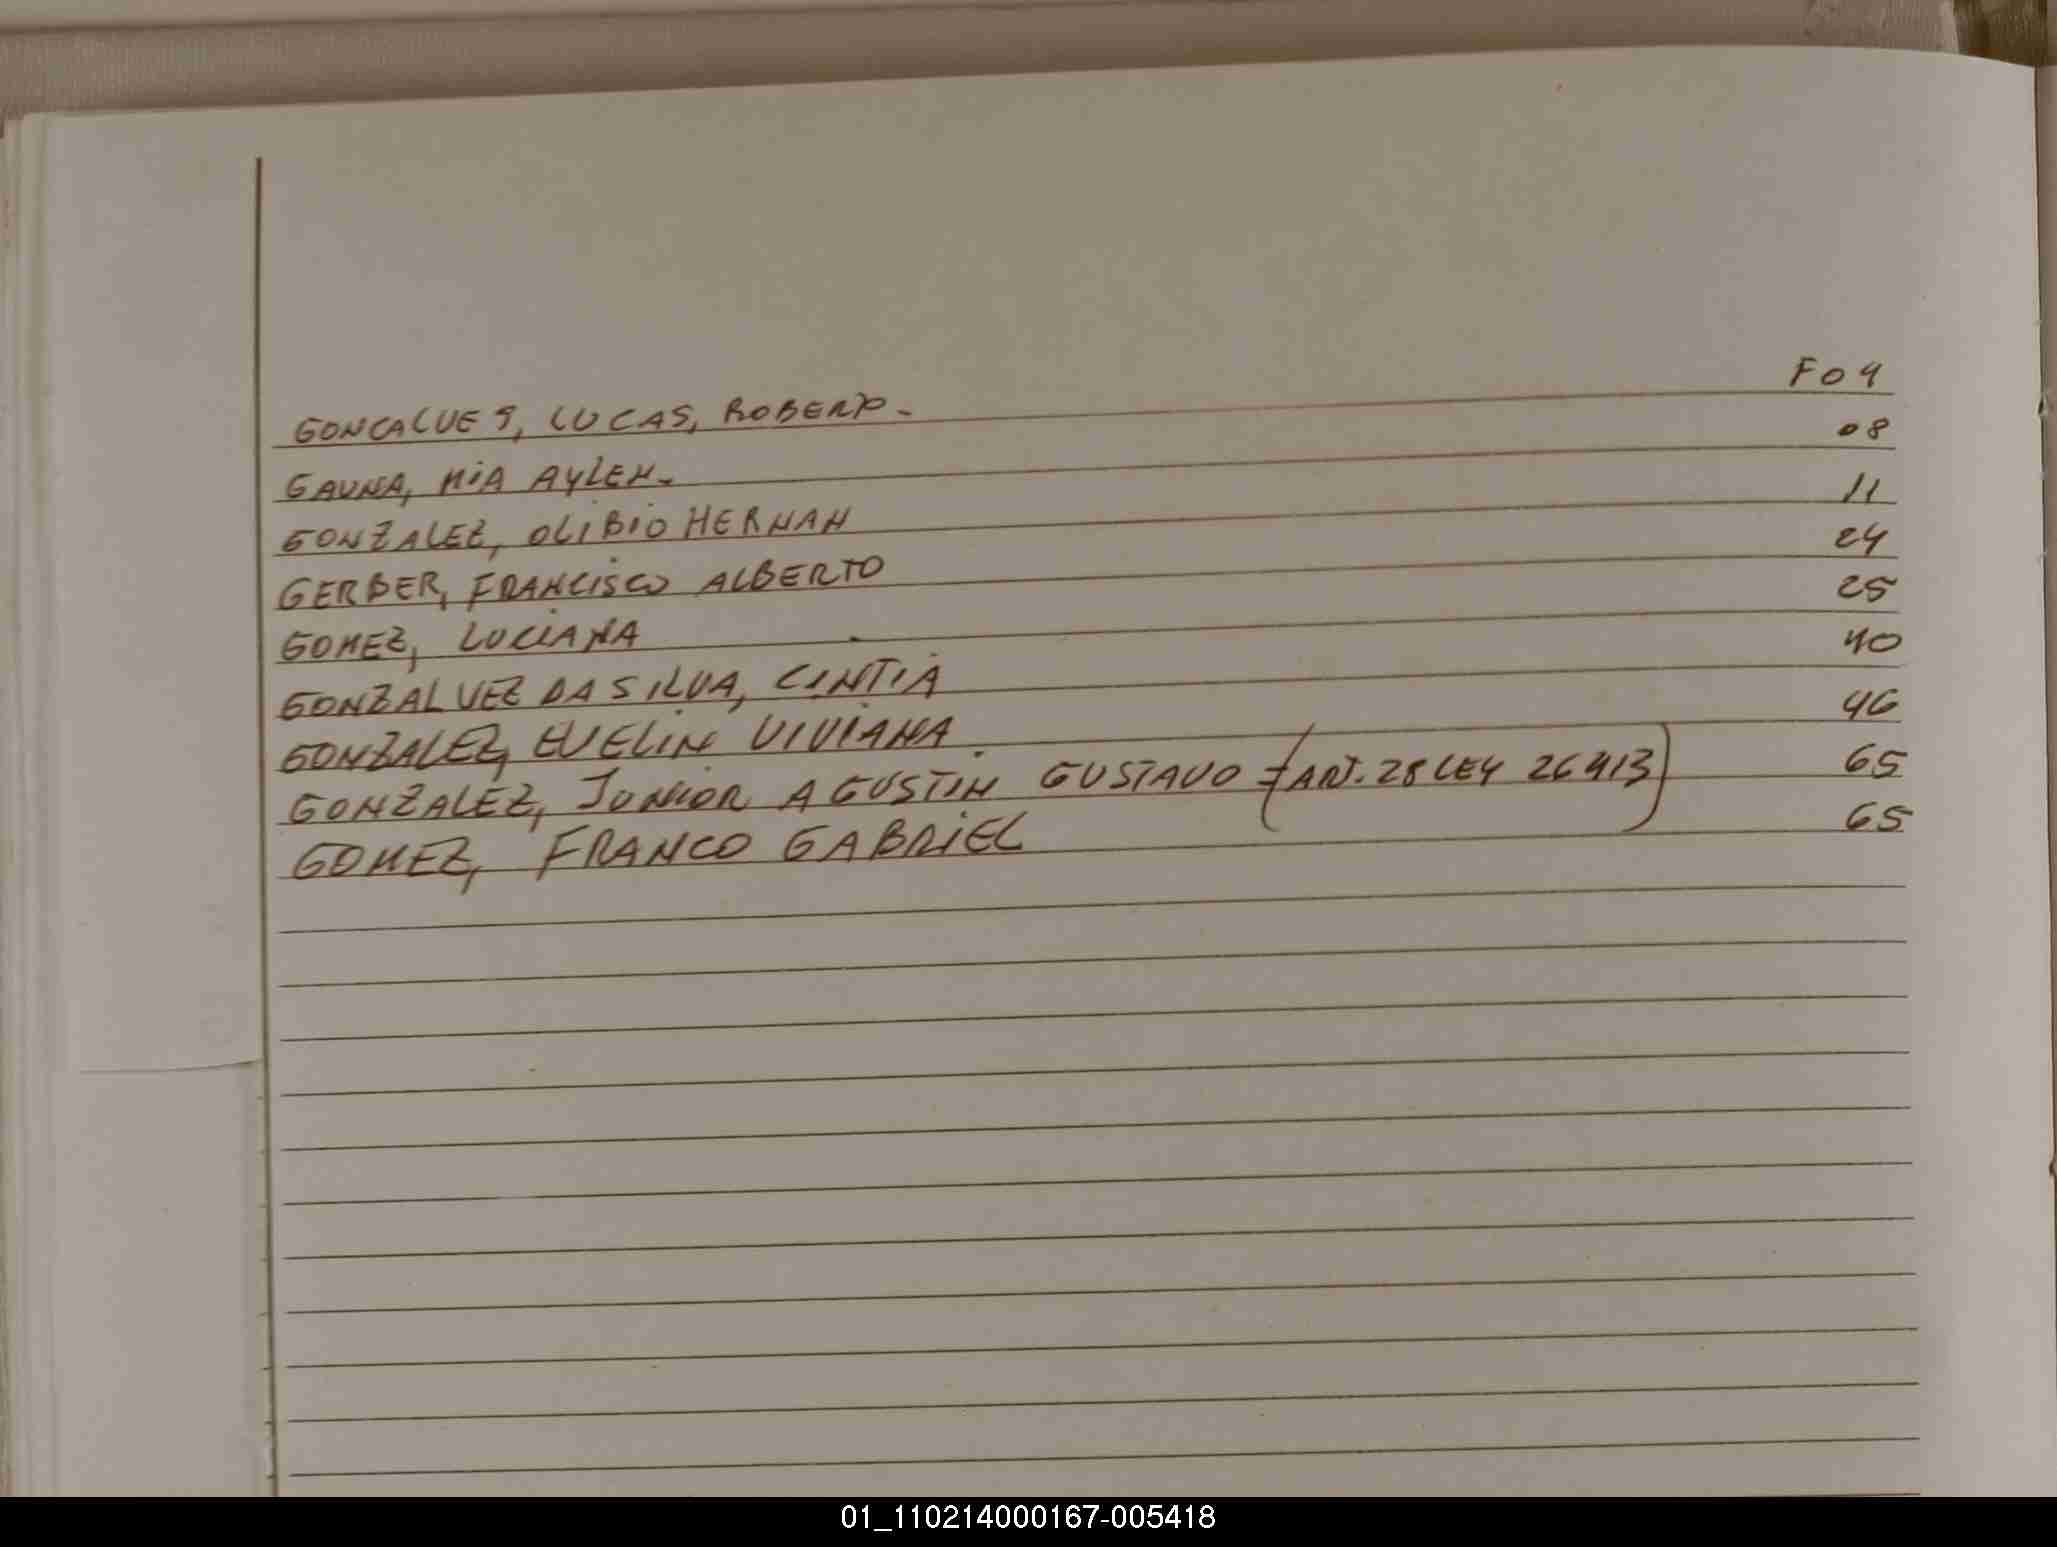 GONCALVES, LUCAS, ROBERTO. F04
GAUNA, MIA AYLEN. 08
GONZALEZ, OLIBIO HERNAN 11
GERBER, FRANCISCO ALBERTO 24
GOMEZ, LUCIANA 25
GONZALVEZ DA SILVA, CINTIA 40
GONZALEZ, EVELIN VIVIANA. 46
GONZALEZ, JUNIOR AGUSTIN GUSTAVO (ART. 28 LEY 26413) 65
GOMEZ, FRANCO GABRIEL 65
01_110214000167-005418